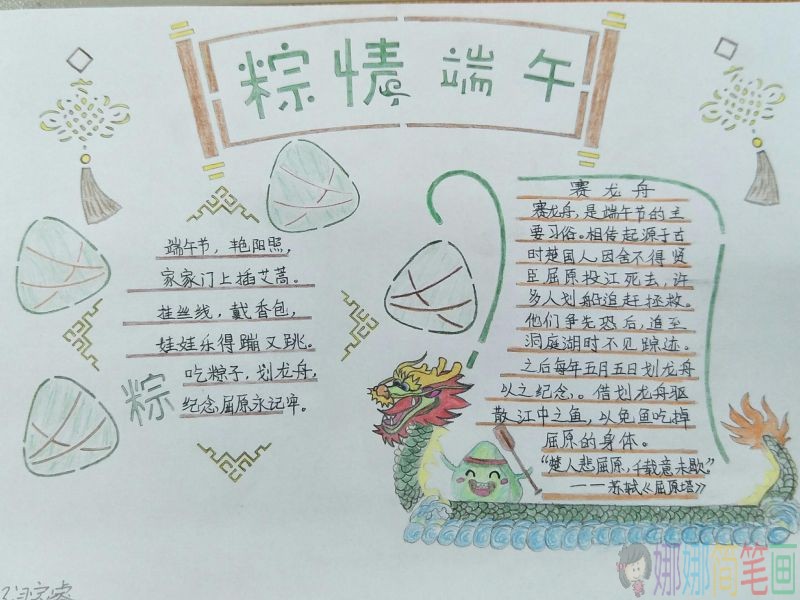 粽情端午
端午节，艳阳照，
家家门上插艾蒿。
挂丝线，戴香包，
娃娃乐得蹦又跳。
吃粽子，划龙舟，
纪念屈原永记牢。
粽
赛龙舟
赛龙舟，是端午节的主
要习俗。相传起源于古
时楚国人因舍不得贤
臣屈原投江死去，许
多人划船追赶拯救。
他们争先恐后，追至
洞庭湖时不见踪迹。
之后每年五月五日划龙舟
以之纪念。。借划龙舟驱
散江中之鱼，以免鱼吃掉
屈原的身体。
“楚人悲屈原，千载意未歇”
——苏轼《屈原塔》
娜娜简笔画